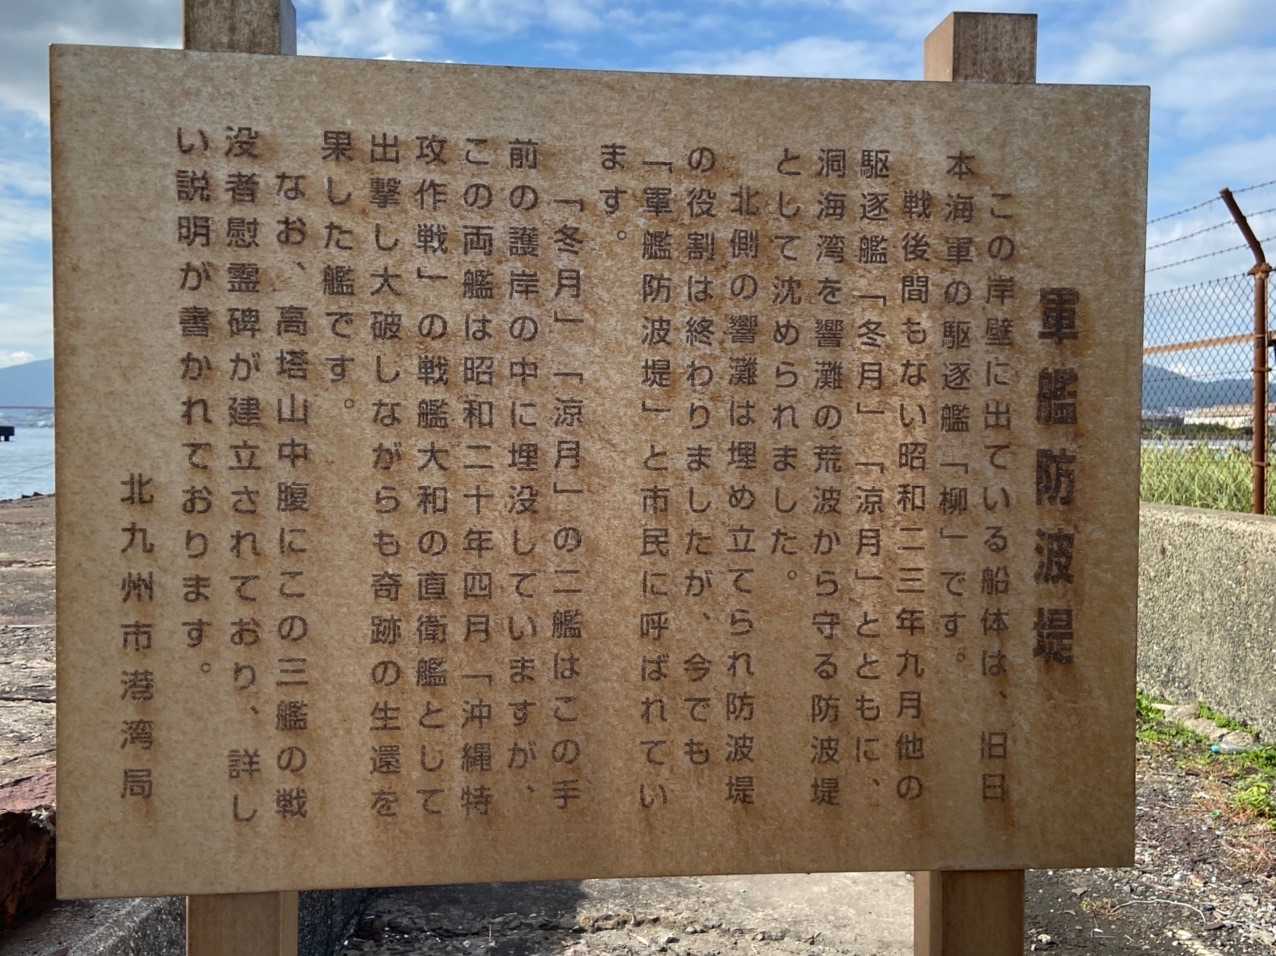 軍艦防波堤
この岸壁に出ている船体は、旧日
本海軍の駆逐艦「柳」です。
戦後間もない昭和二三年九月他の
駆逐艦「冬月」「涼月」とともに、
洞海湾を響灘の荒波から守る防波堤
として沈められました。
北側の響灘は埋め立てられ防波堤
の役割は終わりましたが、今でも
「軍艦防波堤」と市民に呼ばれてい
ます。
「冬月」「涼月」の二艦はこの手
前の護岸の中に埋没していますが、
この両艦は昭和二十年四月「沖縄特
攻作戦」の戦艦大和の直衛艦として
出撃し大破しながらも奇跡の生還を
果した艦です。
なお、高塔山中腹にこの三艦の戦
没者慰霊碑が建立されており、詳し
い説明が書かれております。
北九州市港湾局